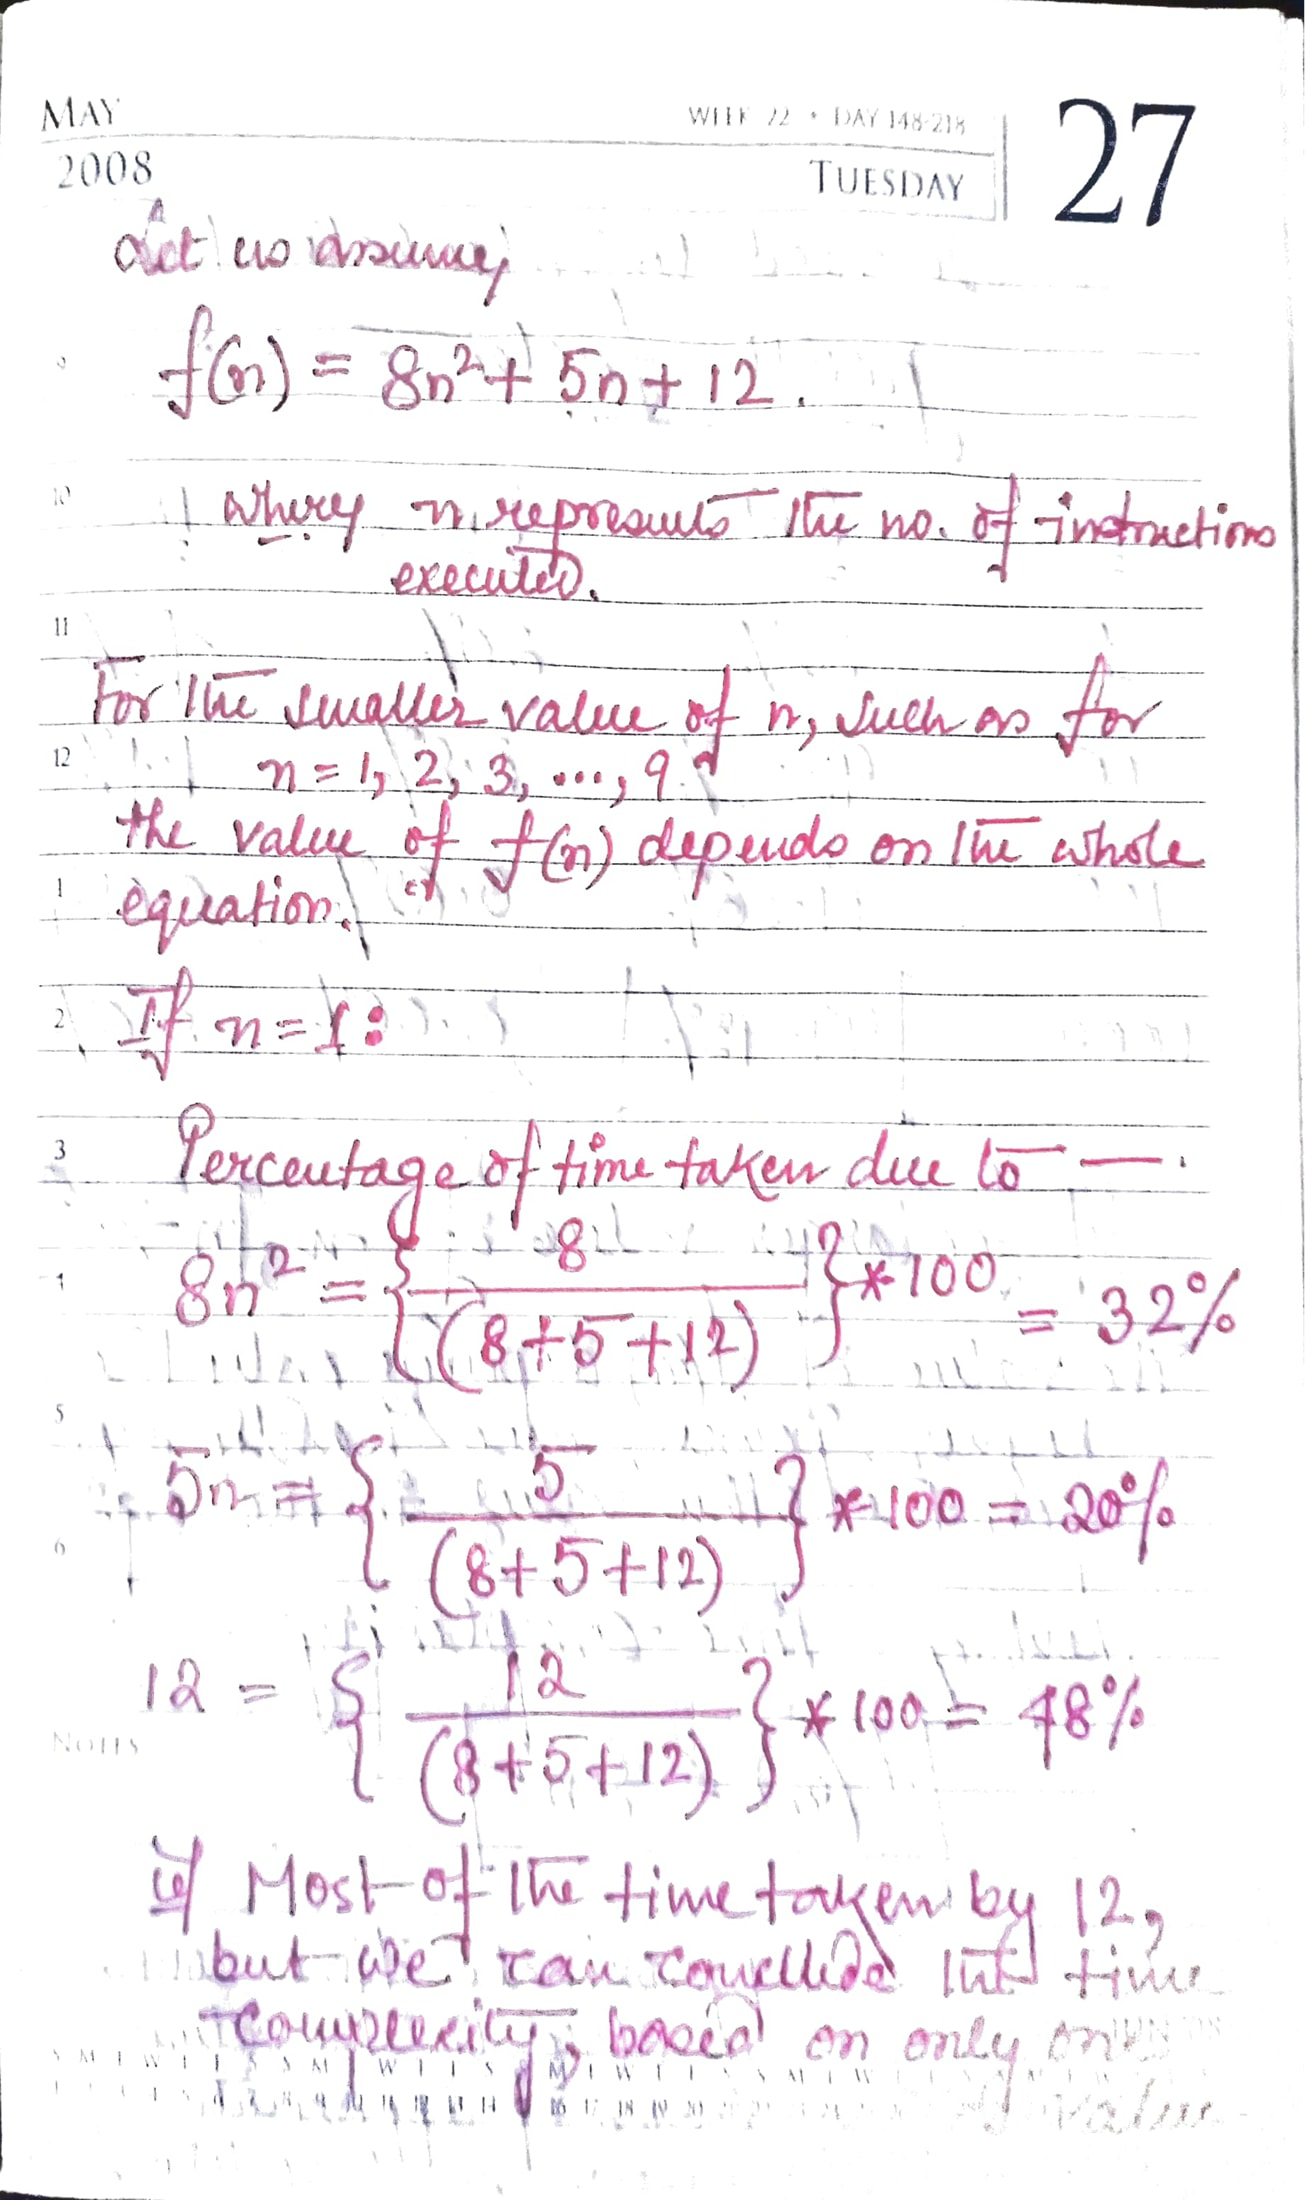 MAY
WEEK 22 • DAY 148-218
27
2008
TUESDAY
Let us assume,
f(n) = 8n² + 5n + 12.
9
10
where, n represents the no. of instructions
executed.
11
For the smaller value of n, such as for
12
n = 1, 2, 3, ..., 9
the value of f(n) depends on the whole
1
equation.
2
If n = 1:
3
Percentage of time taken due to —.
8n² = { 8 / (8+5+12) } * 100 = 32%
5
5n = { 5 / (8+5+12) } * 100 = 20%
6
12 = { 12 / (8+5+12) } * 100 = 48%
NOTES
Most of the time taken by 12,
but we can conclude the time
complexity, based on only on
value